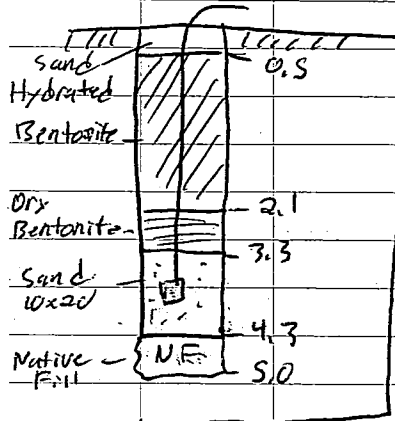 Sand
0.5
Hydrated
Bentonite
2.1
Dry
Bentonite
3.3
Sand
10x20
4.3
Native
Fill
NF
5.0